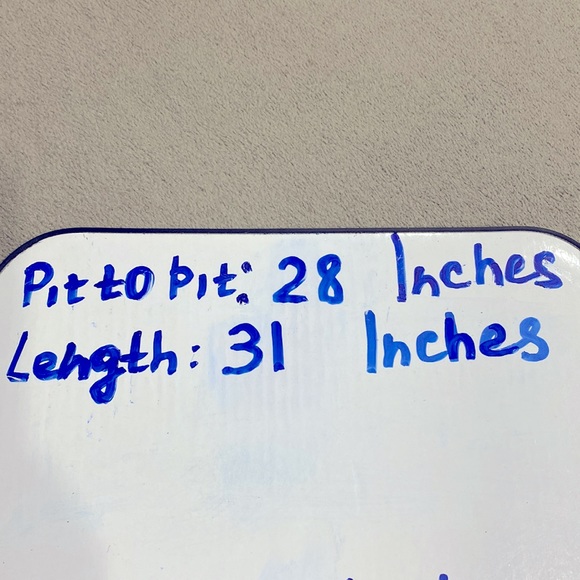 Pit to pit: 28 Inches
Length: 31 Inches